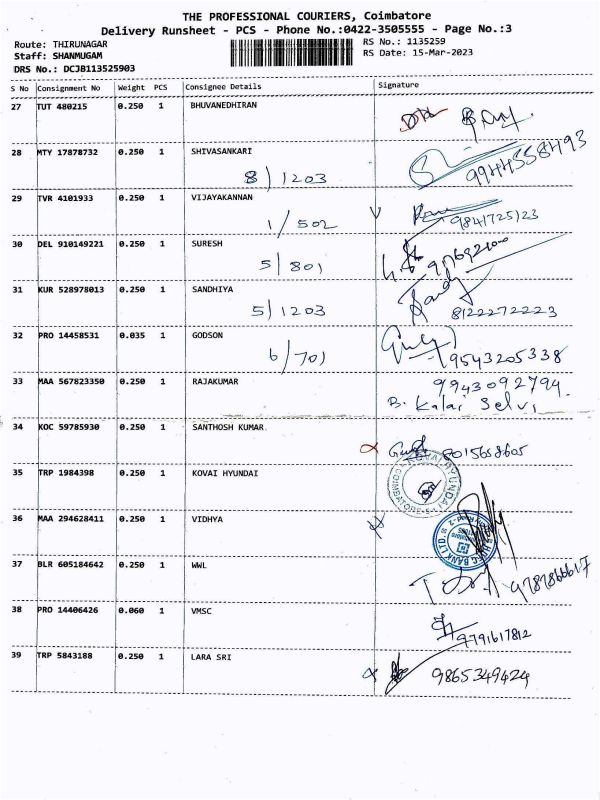 THE PROFESSIONAL COURIERS, Coimbatore
Delivery Runsheet - PCS - Phone No.:0422-3505555 - Page No.:3
Route: THIRUNAGAR RS No.: 1135259
Staff: SHANMUGAM RS Date: 15-Mar-2023
DRS No.: DCJB113525903
S No Consignment No Weight PCS Consignee Details Signature
27 TUT 480215 0.250 1 BHUVANEDHIRAN
28 MTY 17878732 0.250 1 SHIVASANKARI
8/1203 9944558493
29 TVR 4101933 0.250 1 VIJAYAKANNAN
1/502 9841725123
30 DEL 910149221 0.250 1 SURESH
5/801
31 KUR 528978013 0.250 1 SANDHIYA
5/1203 8122272223
32 PRO 14458531 0.035 1 GODSON
6/701 9543205338
33 MAA 567823350 0.250 1 RAJAKUMAR 9943092794
B. Kalai Selvi
34 KOC 59785930 0.250 1 SANTHOSH KUMAR
8015658605
35 TRP 1984398 0.250 1 KOVAI HYUNDAI
KOVAI HYUNDAI
COIMBATORE
36 MAA 294628411 0.250 1 VIDHYA
BANK LTD
37 BLR 605184642 0.250 1 WWL
38 PRO 14406426 0.060 1 VMSC
9791617812
39 TRP 5843188 0.250 1 LARA SRI
9865349424